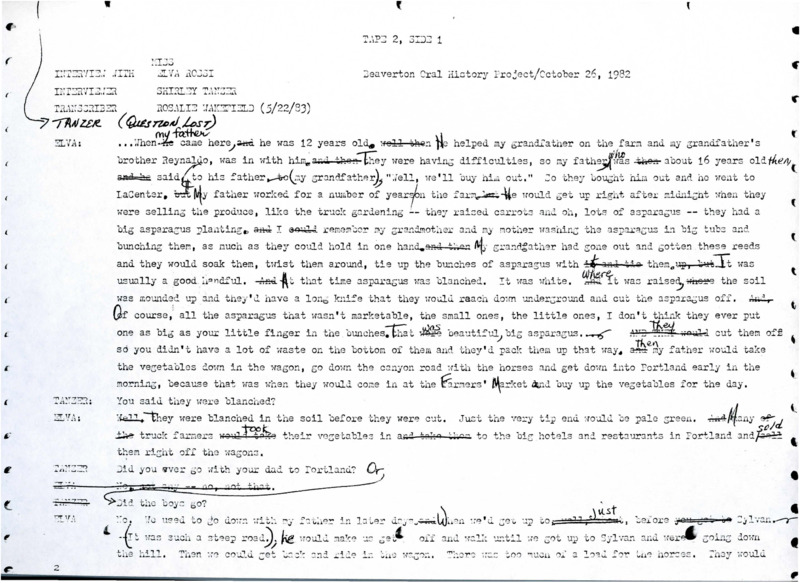 TAPE 2, SIDE 1
MISS
INTERVIEW WITH ELVA ROSSI Beaverton Oral History Project/October 26, 1982
INTERVIEWER SHIRLEY TANZER
TRANSCRIBER ROSALIE WAKEFIELD (5/22/83)
TANZER (QUESTION LOST)
my father
ELVA: ...When he came here, and he was 12 years old. well then He helped my grandfather on the farm and my grandfather's
brother Reynaldo, was in with him. and then They were having difficulties, so my father, who was then about 16 years old then
and he said, to his father, to (my grandfather), "Well, we'll buy him out." So they bought him out and he went to
LaCenter. but My father worked for a number of years on the farm. He would get up right after midnight when they
were selling the produce, like the truck gardening -- they raised carrots and oh, lots of asparagus -- they had a
big asparagus planting. and I could remember my grandmother and my mother washing the asparagus in big tubs and
bunching them, as much as they could hold in one hand. and then My grandfather had gone out and gotten these reeds
and they would soak them, twist them around, tie up the bunches of asparagus with it and tie them up, but It was
usually a good handful. And At that time asparagus was blanched. It was white. And where it was raised, where the soil
was mounded up and they'd have a long knife that they would reach down underground and cut the asparagus off. And,
Of course, all the asparagus that wasn't marketable, the small ones, the little ones, I don't think they ever put
one as big as your little finger in the bunches. That was beautiful, big asparagus.... AND THEY would They cut them off
so you didn't have a lot of waste on the bottom of them and they'd pack them up that way. and Then my father would take
the vegetables down in the wagon, go down the canyon road with the horses and get down into Portland early in the
morning, because that was when they would come in at the Farmers' Market and buy up the vegetables for the day.
TANZER: You said they were blanched?
ELVA: Well, They were blanched in the soil before they were cut. Just the very tip end would be pale green. And Many of
the truck farmers would take took their vegetables in and take them to the big hotels and restaurants in Portland and sold
them right off the wagons.
TANZER Did you ever go with your dad to Portland? Or,
ELVA No, not any -- no, not that.
TANZER Did the boys go?
ELVA No. We used to go down with my father in later days and When we'd get up to just, before you get to Sylvan.
(It was such a steep road.), he would make us get off and walk until we got up to Sylvan and were going down
the hill. Then we could get back and ride in the wagon. There was too much of a load for the horses. They would
2